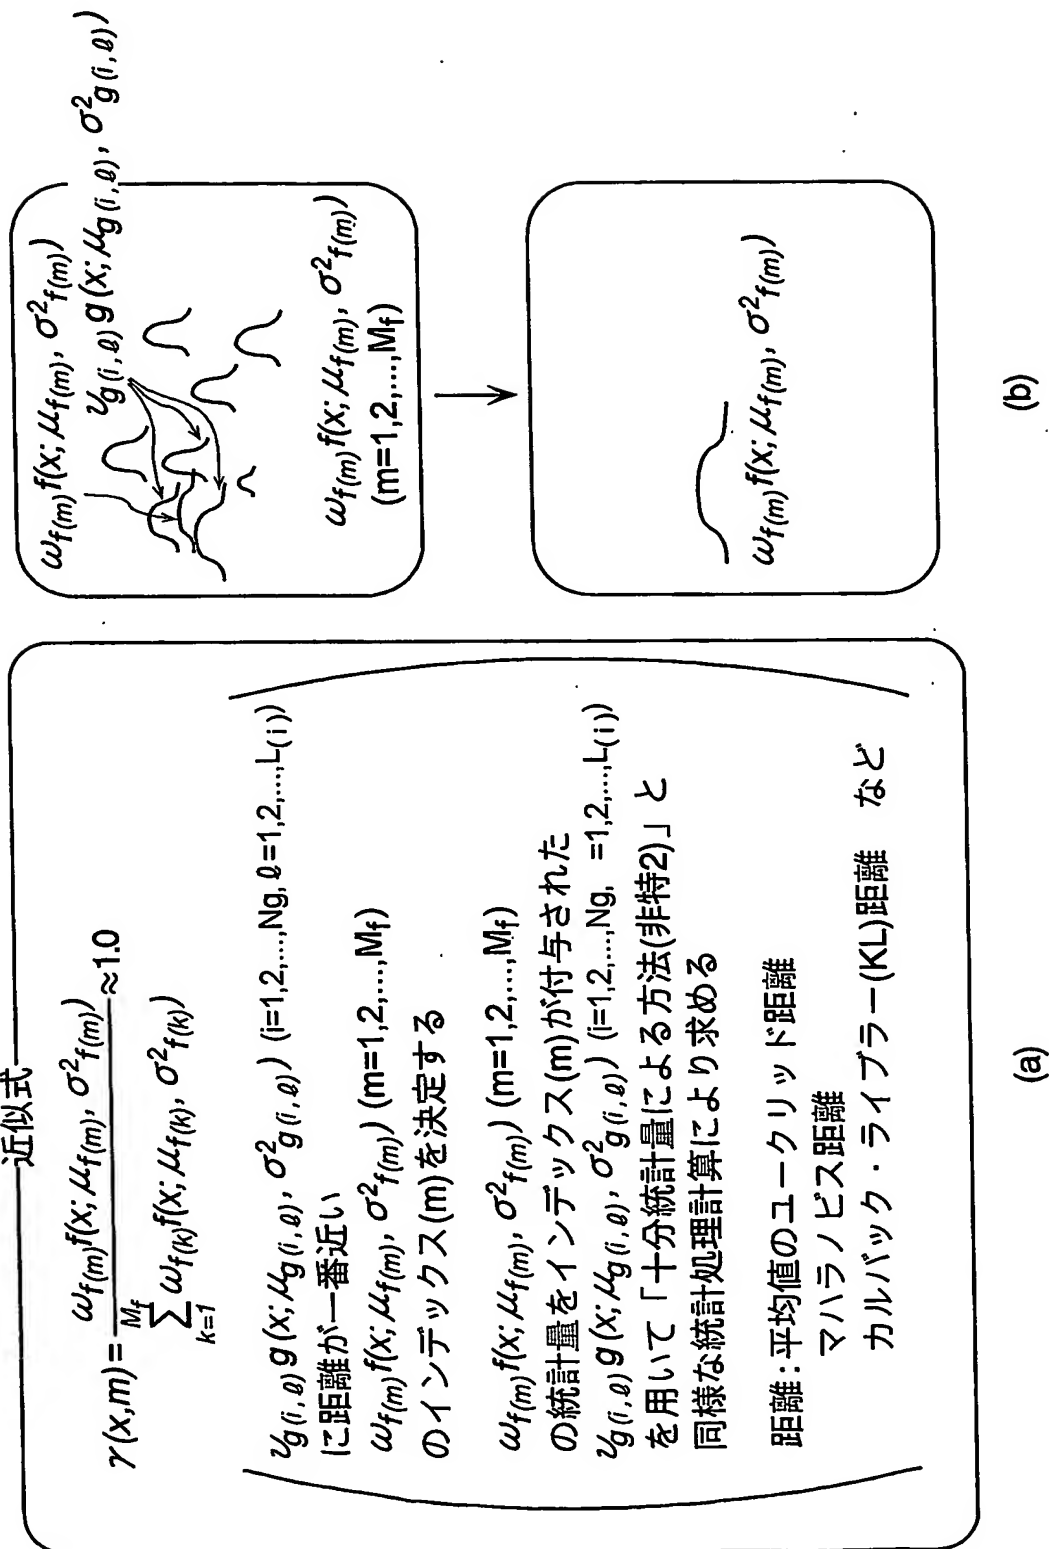 近似式
γ(x,m) = ω_f(m) f(x; μ_f(m), σ²_f(m)) / Σ_{k=1}^{M_f} ω_f(k) f(x; μ_f(k), σ²_f(k)) ≈1.0
ν_g(i,ℓ) g(x; μ_g(i,ℓ), σ²_g(i,ℓ)) (i=1,2,...,Ng, ℓ=1,2,...,L(i))
に距離が一番近い
ω_f(m) f(x; μ_f(m), σ²_f(m)) (m=1,2,...,M_f)
のインデックス(m)を決定する
ω_f(m) f(x; μ_f(m), σ²_f(m)) (m=1,2,...,M_f)
の統計量をインデックス(m)が付与された
ν_g(i,ℓ) g(x; μ_g(i,ℓ), σ²_g(i,ℓ)) (i=1,2,...,Ng, =1,2,...,L(i))
を用いて「十分統計量による方法(非特2)」と
同様な統計処理計算により求める
距離:平均値のユークリッド距離
マハラノビス距離
カルバック・ライブラー(KL)距離 など
(a)
ω_f(m) f(x; μ_f(m), σ²_f(m))
ν_g(i,ℓ) g(x; μ_g(i,ℓ), σ²_g(i,ℓ))
ω_f(m) f(x; μ_f(m), σ²_f(m))
(m=1,2,...,M_f)
ω_f(m) f(x; μ_f(m), σ²_f(m))
(b)